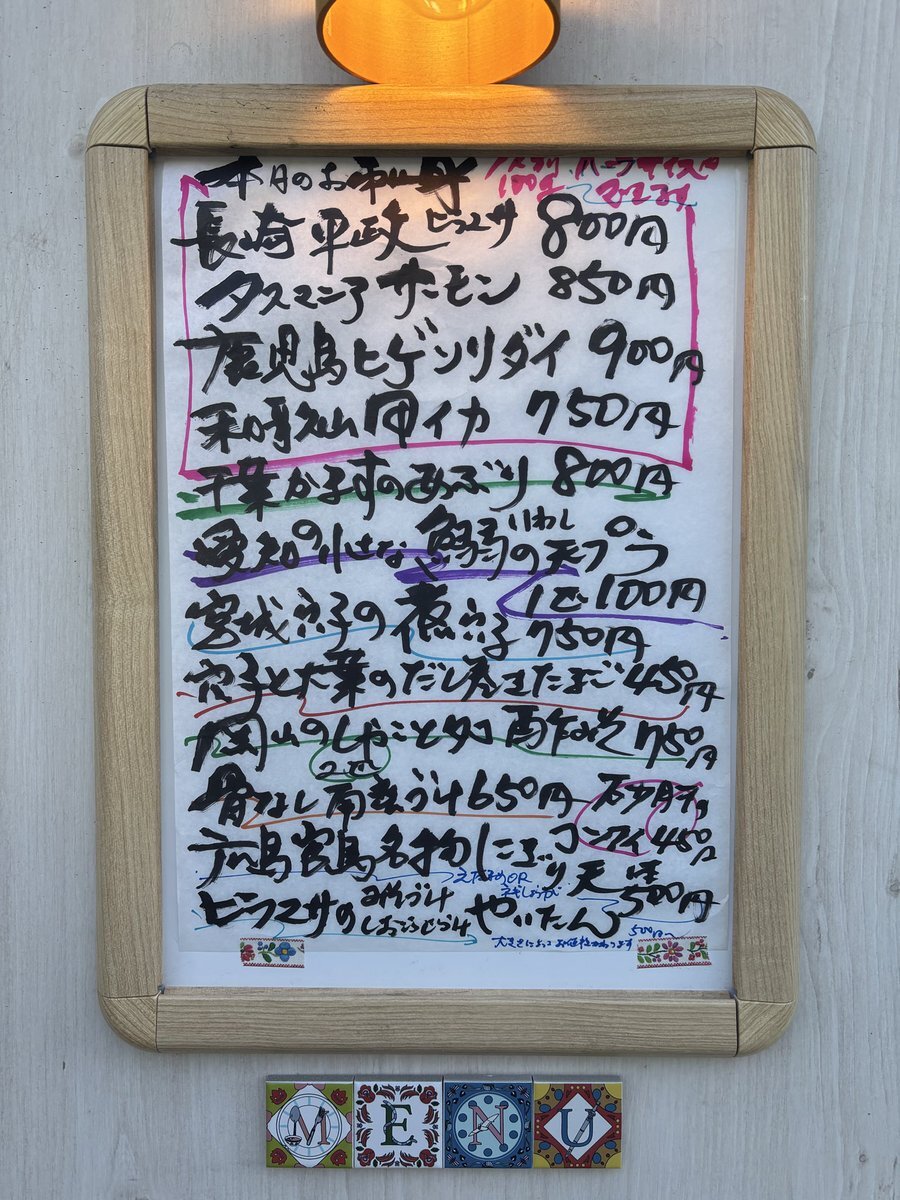 本日のお刺身 ハーフサイズ
長崎 平政 ヒラマサ 800円
タスマニアサーモン 850円
鹿児島ヒゲソリダイ 900円
和歌山甲イカ 750円
千葉かますのあぶり 800円
愛知の小さな鰯いわしの天プラ
1コ 100円
宮城穴子の煮穴子 750円
穴子と大葉のだし巻きたまご 450円
岡山のしゃことタコ 酢みそ 750円
骨なし南蛮づけ 650円 砂肝
コンフィ 450円
広島宮島名物にごり天
500円
ヒラマサの みそづけ しおこうじづけ やいたん
500円〜
大きさによってお値段かわります
MENU